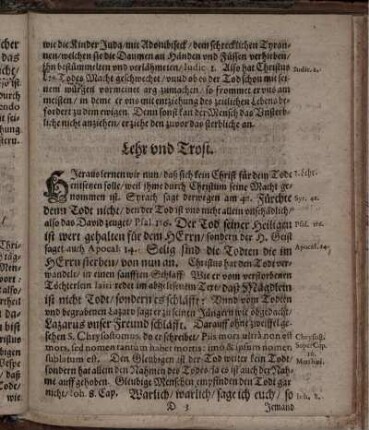 wie die Kinder Juda/ mit Adonibeseck/ dem schrecklichen Tyran-
nen/ welchen sie die Daumen an Händen und Füssen verhieben/
ihn bestümmelten und verlähmeten/ Iudic. 1. Also hat Christus
Iudic. 1.
des Todes Macht geschwechet/ unnd ob es der Tod schon mit sei-
nem würgen vermeinet arg zumachen/ so frommet er uns am
meisten/ in deme er uns mit entziehung des zeitlichen Lebens be-
fordert zu dem ewigen. Denn sonst kan der Mensch das Unsterb-
liche nicht anziehen/ er ziehe den zuvor das sterbliche an.
Lehr vnd Trost.
HIeraus lernen wir nun/ daß sich kein Christ für dem Tode
entsetzen solle/ weil ihme durch Christum seine Macht ge-
nommen ist. Syrach sagt derwegen am 41. Fürchte
Syr. 41.
denn Todt nicht/ den der Tod ist uns nicht allein unschädlich/
also das David zeuget/ Psal. 116. Der Tod seiner Heiligen
Psal. 116.
ist wert gehalten für dem HErrn/ sondern der H. Geist
saget auch Apocal. 14. Selig sind die Todten die im
Apocal. 14.
HErrn sterben/ von nun an. Christus hat den Todt ver-
wandelt/ in einen sanfften Schlaff: Wie er vom verstorbenen
Töchterlein Iairi redet im abgelesenen Text/ daß Mägdlein
ist nicht Todt/ sondern es schläfft: Unnd vom Todten
und begrabenen Lazaro sagt er zu seinen Jüngern wie obgedacht/
Lazarus unser Freund schläfft. Darauff ohne zweiffel ge-
sehen S. Chrysostomus do er schreibet/ Piis mors ultrà non est
Chrysost.
mors, sed nomen tantùm habet mortis: imò & ipsum nomen
Super Cap.
sublatum est. Den Gleubigen ist der Tod weiter kein Todt/
Matthæi.
sondern hat allein den Nahmen des Todes/ ja es ist auch der Nah-
me auffgehoben. Gleubige Menschen empfinden den Todt gar
nicht/ Ioh. 8. Cap. Warlich/ warlich/ sage ich euch/ so
Ioh. 8.
D 3 Jemand